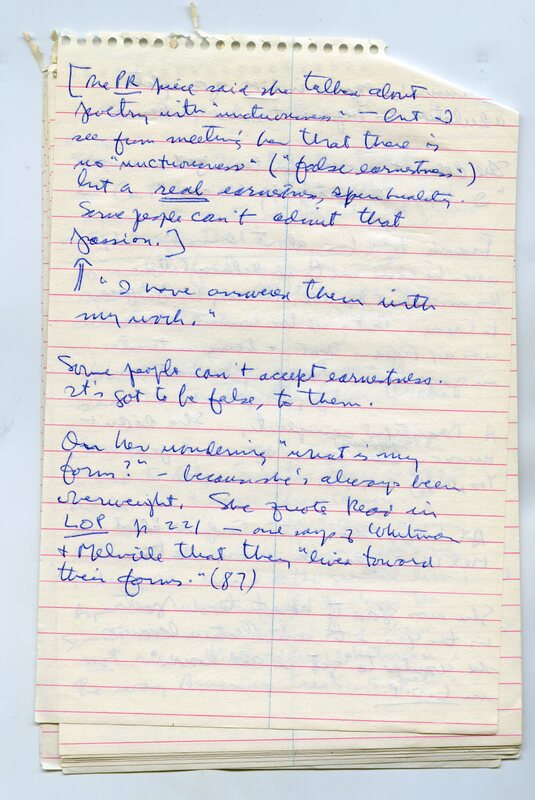 [The PR piece said she talked about
poetry with "unctuousness" — but I
see from meeting her that there is
no "unctuousness" ("false earnestness")
but a real earnestness, spirituality.
Some people can't admit that
passion.]
↑ "I have answered them with
my work."
Some people can't accept earnestness.
It's got to be false, to them.
On her wondering "what is my
form?" – because she's always been
overweight. She quote Read in
LOP p. 221 — and says of Whitman
& Melville that they "lived toward
their forms." (87)